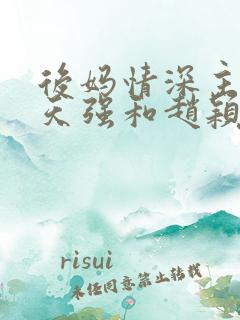 後妈情深主
天强和赵颖
risui
未经同意禁止转载